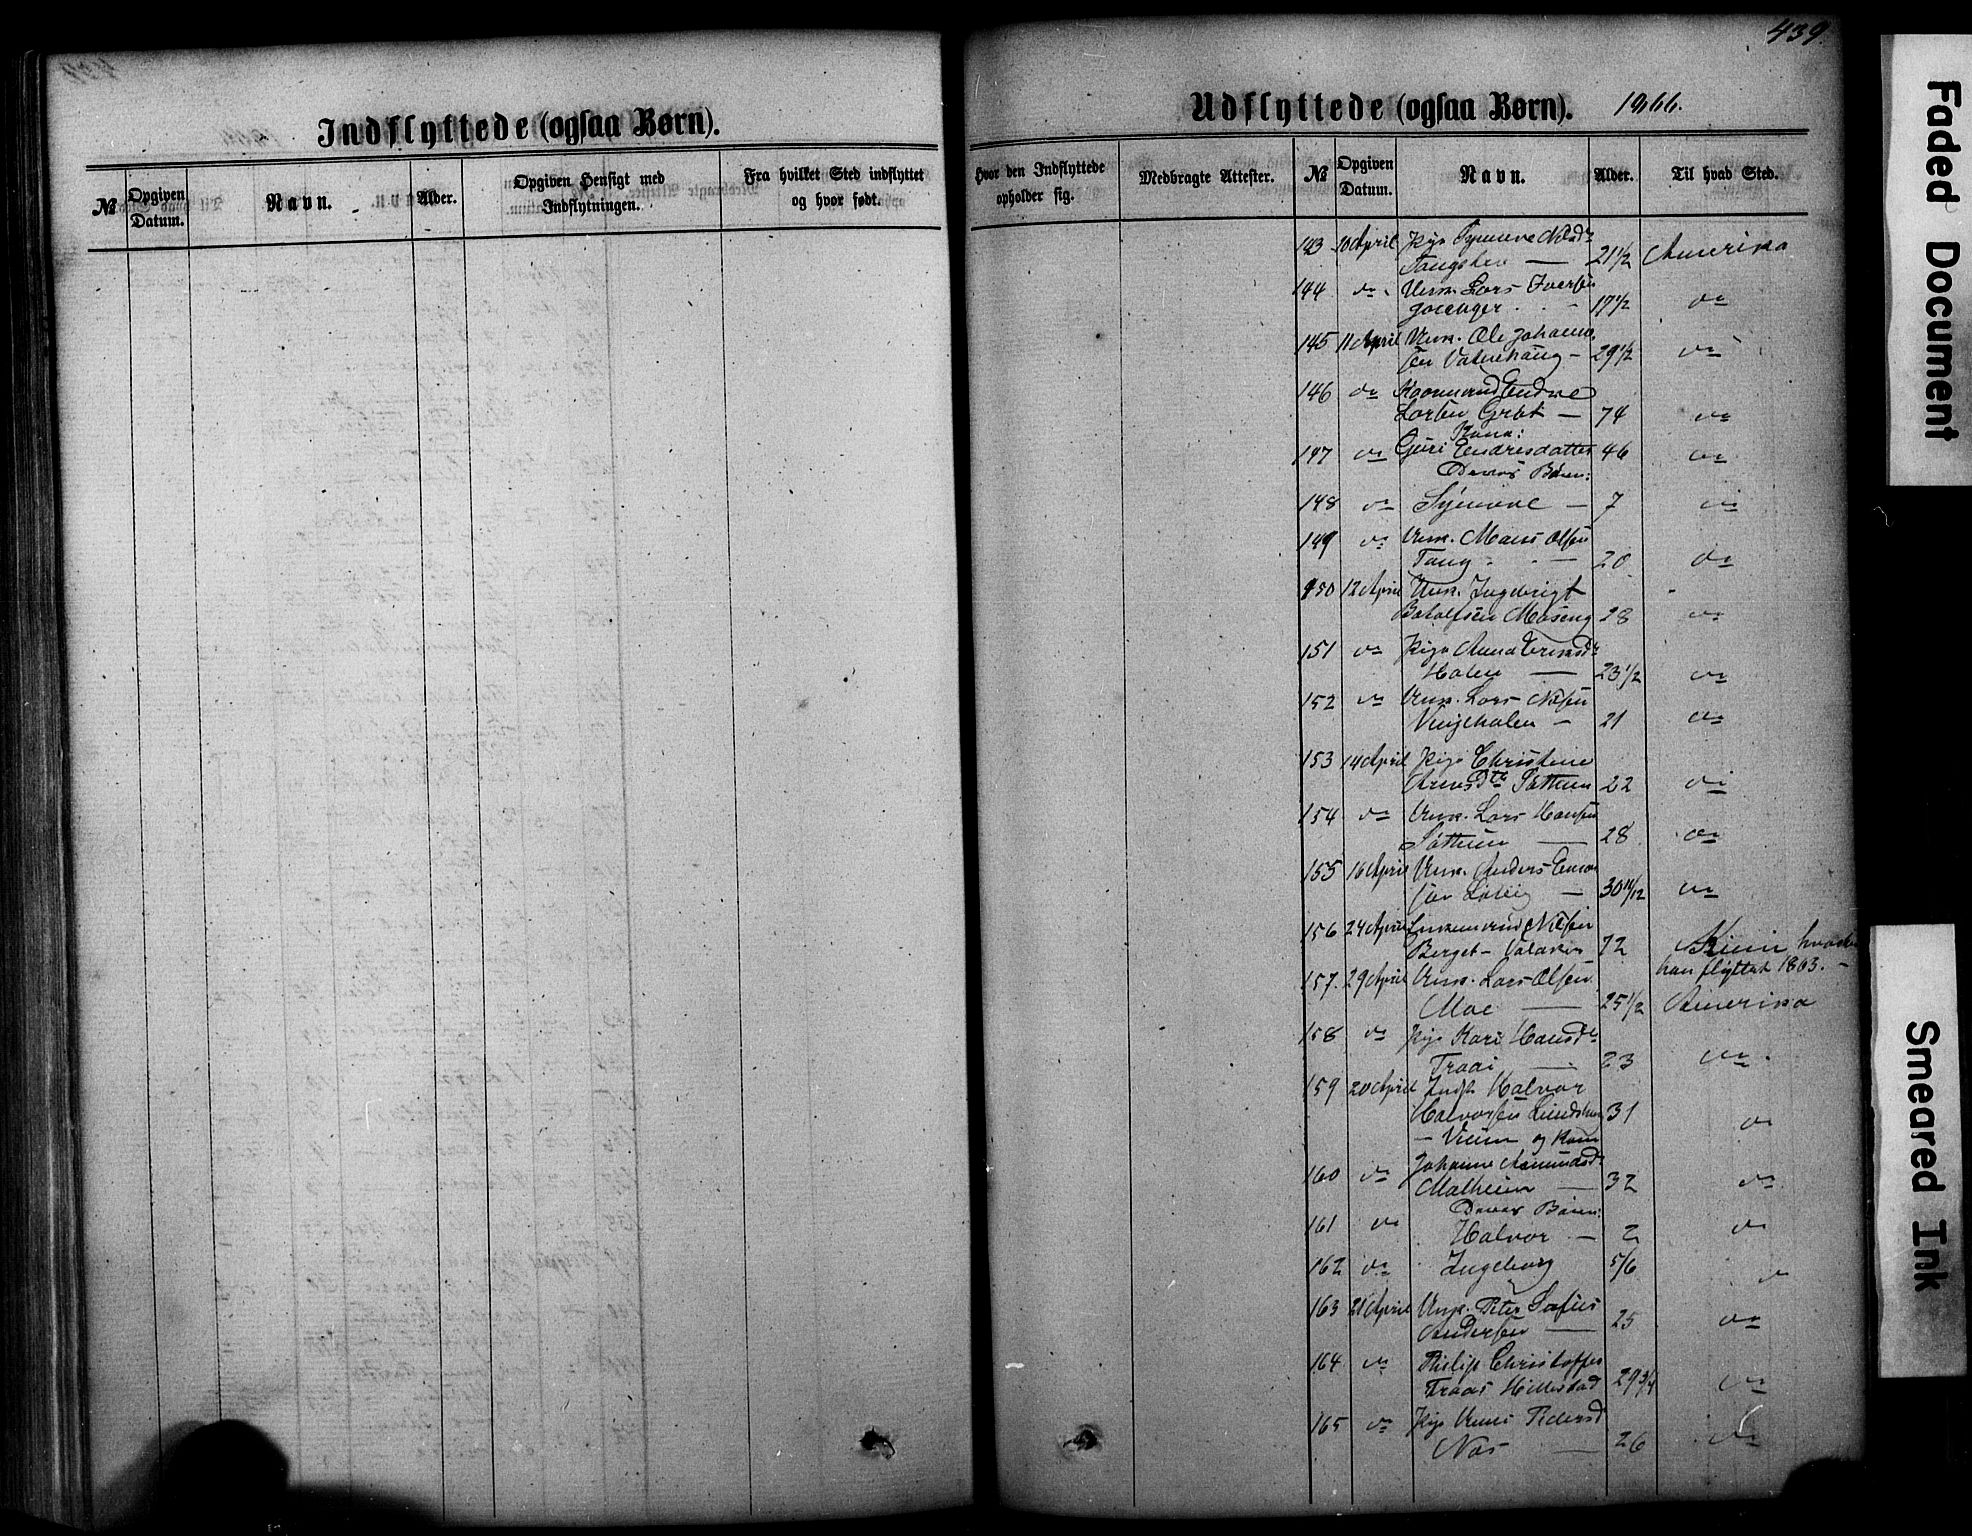 439
Indflyttede (ogsaa Børn).
№
Opgiven Datum.
Navn.
Alder.
Opgiven Hensigt med Indflytningen.
Fra hvilket Sted indflyttet og hvor født.
Udflyttede (ogsaa Børn). 1866.
Hvor den Indflyttede opholder sig.
Medbragte Attester.
№
Opgiven Datum.
Navn.
Alder.
Til hvad Sted.
143 10 April Pige Synneve Nilsdr
21 1/2 Amerika
144 do Unk. Lars Iversen
17 1/2 do
145 11 April Unk. Ole Johanne
sen Vatnehaug — 29 1/2 do
146 do Kaarmand Endre
Larsen Grøt — 74 do
Kone:
147 do Guri Endresdatter 46 do
Deres Børn:
148 do Synneve — 7 do
149 do Unk. Mons Olsen
Tang — 20 do
150 12 April Unk. Ingebrigt
Botolfsen Moseng 28 do
151 do Pige Anna Eriksdr
Holen — 23 1/2 do
152 do Unk. Lars Nilsen
21 do
153 14 April Pige Christine
Arnesdtr Søttun 22 do
154 do Unk. Lars Hansen
Søttun — 28 do
155 16 April Unk. Anders Einar
sen — 30 11/12 do
156 24 April Enkemand Nilsen
Berget 72 hvorhen
han flyttet 1863. —
157. 29 April Unk. Lars Olsen
Moe — 25 1/2 Amerika
158 do Pige Kari Hansdr
Traai — 23 do
159 20 April Inds. Halvor
Halvorsen 31 do
og Kone
160 do Johanne Aamundsdr
Malheim — 32 do
Deres Børn:
161 do Halvor — 2 do
162 do Ingeborg 5/6 do
163 21 April Unk. Peter Sofus
Andersen — 25 do
164 do Philip Christoffer
Traas Hillestad 29 3/4 do
165 do Pige Unni Pedersd
Nøs — 26 do
Faded Document
Smeared Ink